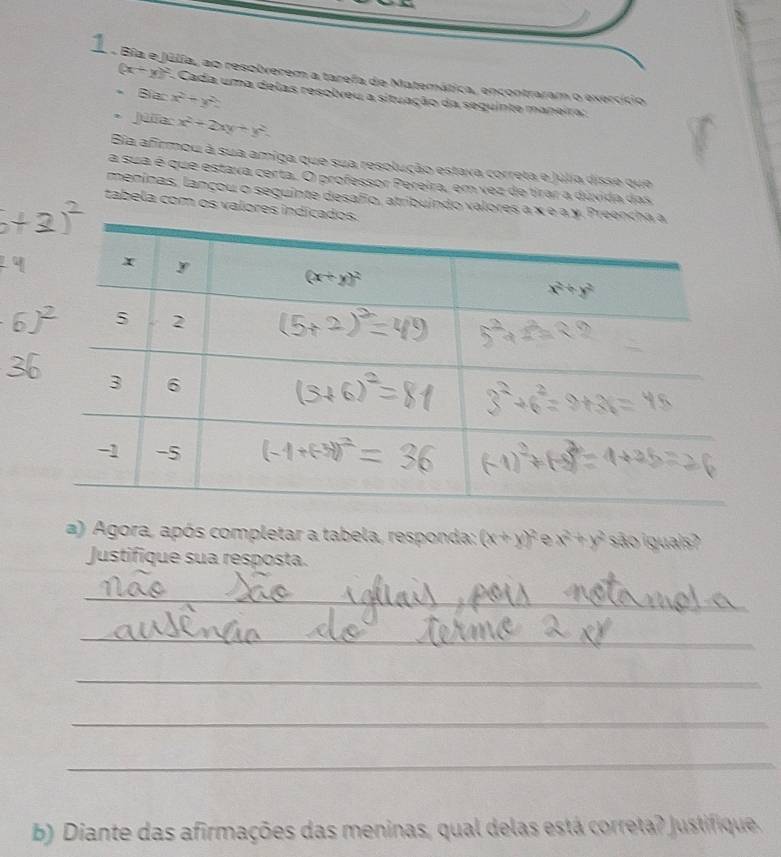 1. Bia e Júlia, ao resolverem a tarefa de Matemática, encontraram o exercício
(x + y)². Cada uma delas resolveu a situação da seguinte maneira:
• Bia: x² + y².
• Júlia: x² + 2xy + y².
Bia afirmou à sua amiga que sua resolução estava correta e Júlia disse que
a sua é que estava certa. O professor Pereira, em vez de tirar a dúvida das
meninas, lançou o seguinte desafio, atribuindo valores a x e a y. Preencha a
tabela com os valores indicados.
+2)²
6)²
36
x y (x + y)² x² + y²
5 2 (5+2)²=49 5²+2²=29
3 6 (3+6)²=81 3²+6²=9+36=45
-1 -5 (-1+(-5))²=36 (-1)²+(-5)²=1+25=26
a) Agora, após completar a tabela, responda: (x + y)² e x² + y² são iguais?
Justifique sua resposta.
não são iguais, pois notamos a
ausência do termo 2xy
b) Diante das afirmações das meninas, qual delas está correta? Justifique.